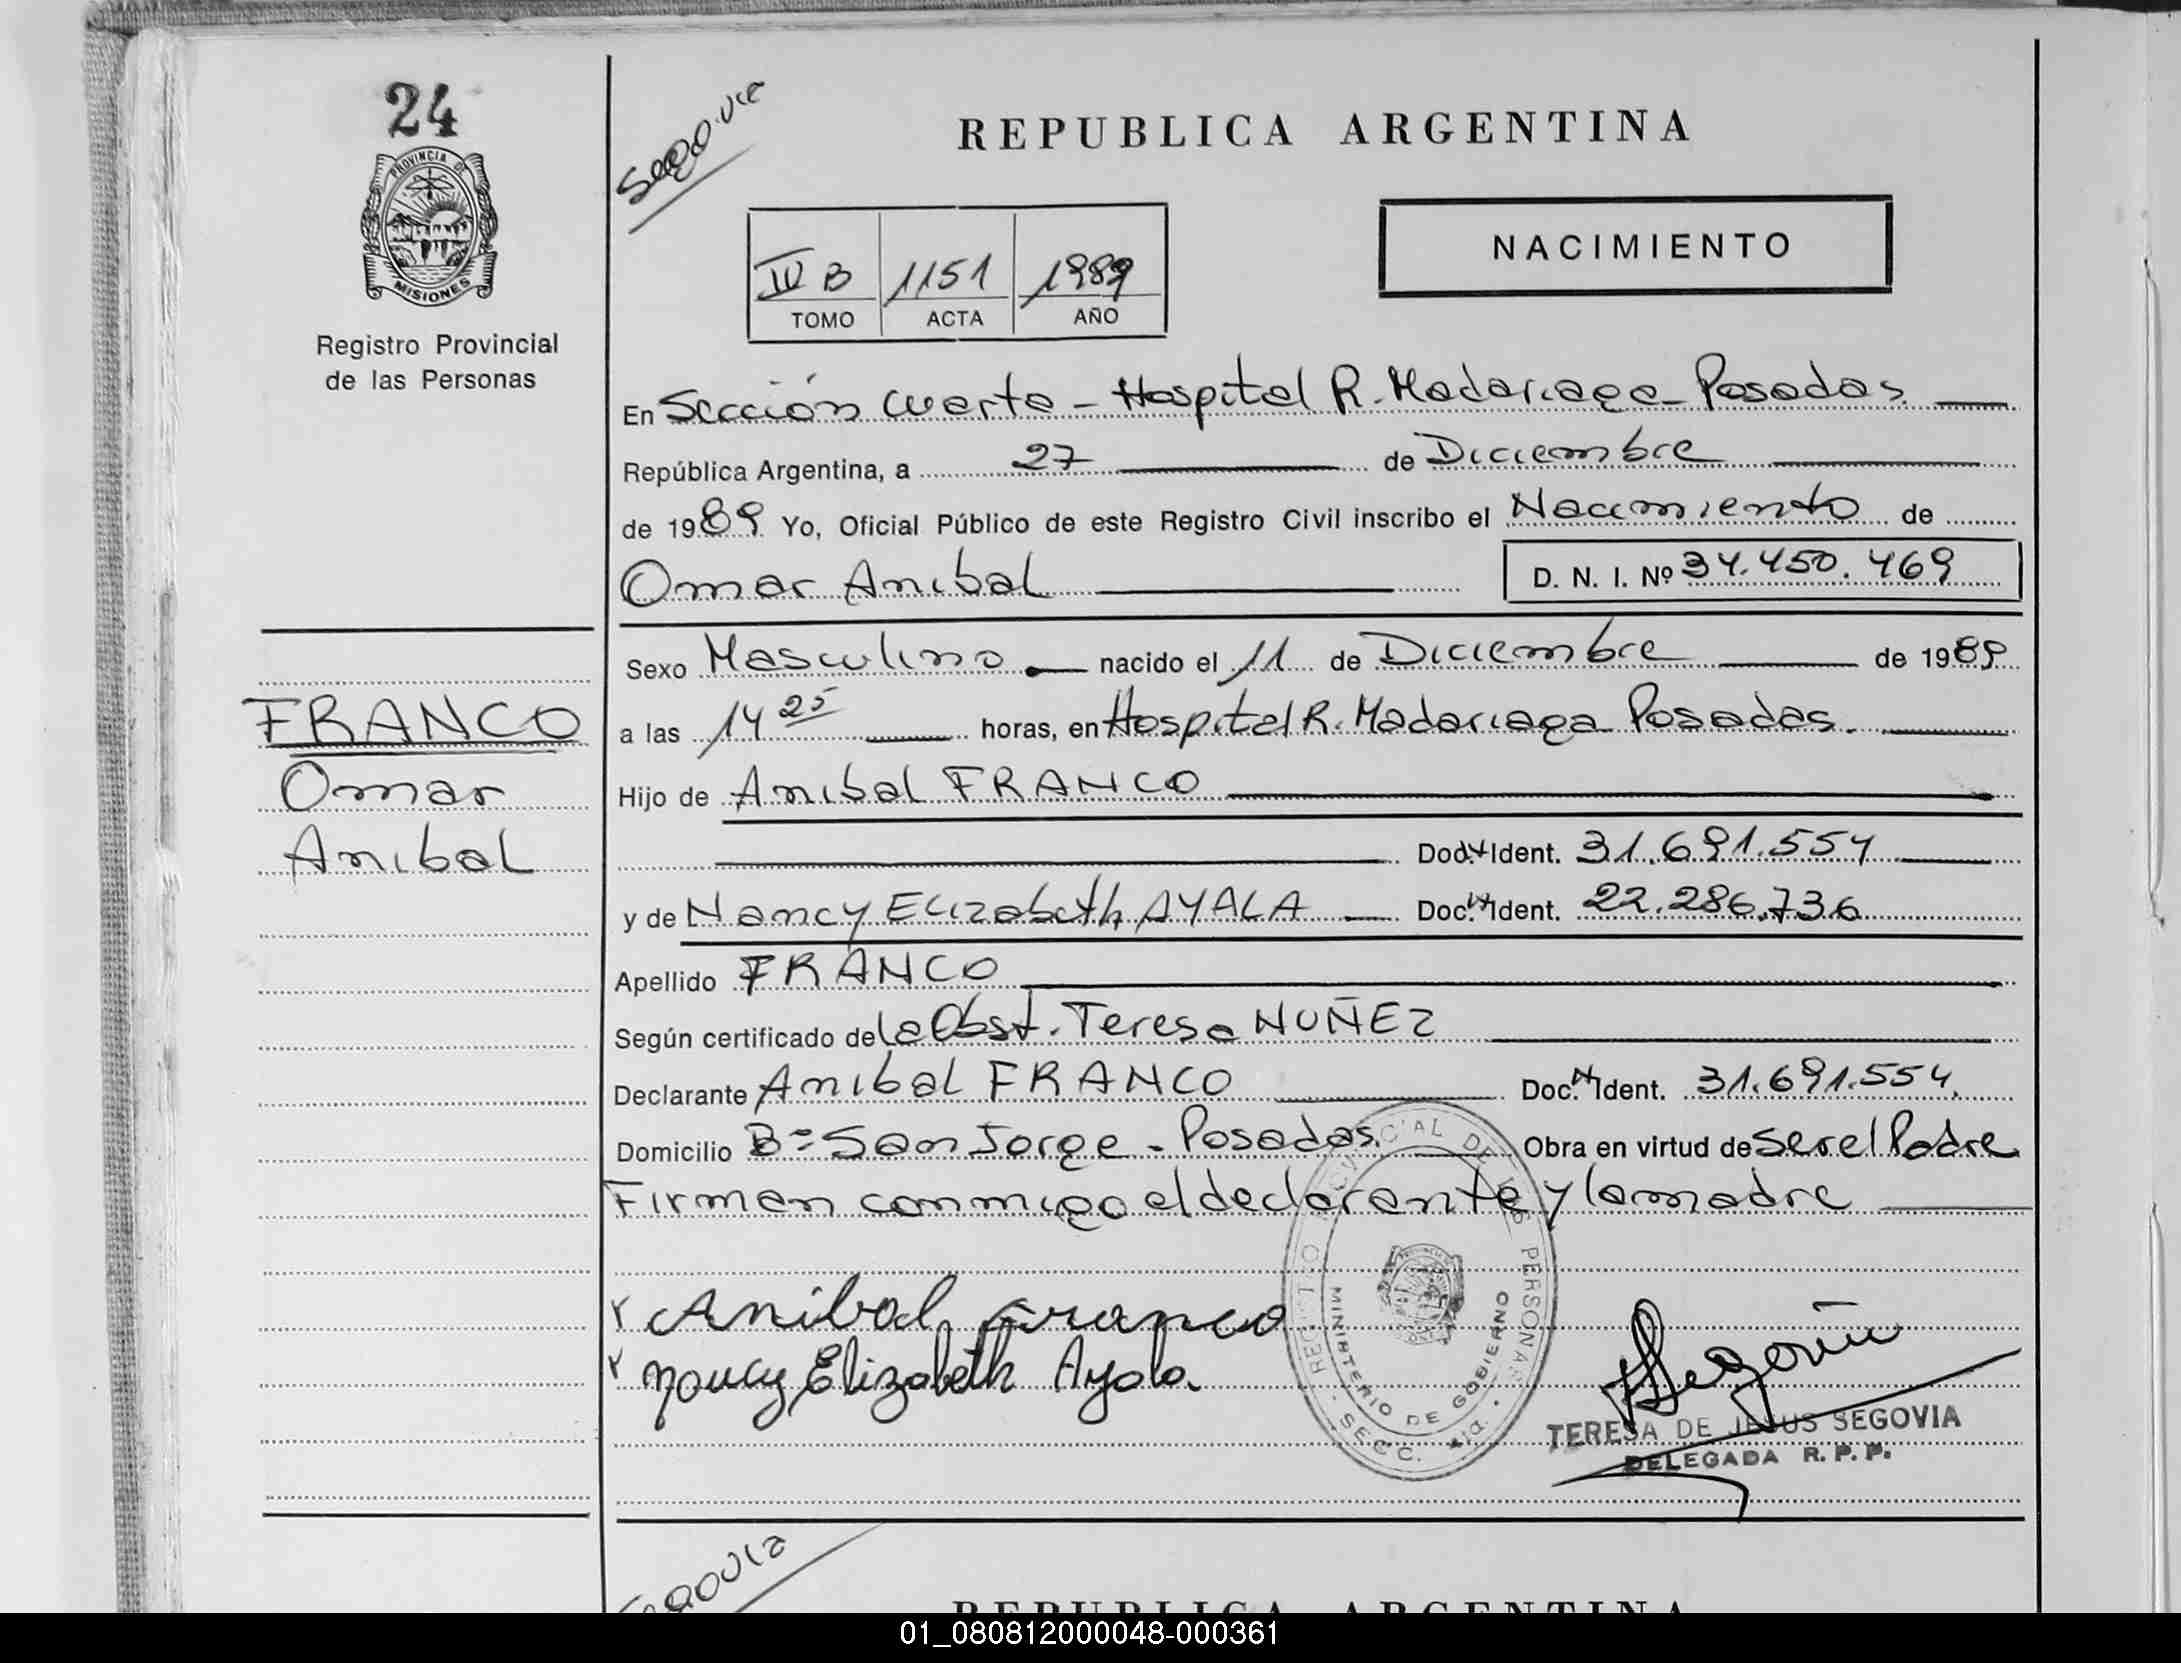 24
PROVINCIA DE
MISIONES
Registro Provincial
de las Personas
FRANCO
Omar
Anibal
Segovia
REPUBLICA ARGENTINA
NACIMIENTO
IV B 1151 1989
TOMO ACTA AÑO
En Sección cuarta - Hospital R. Madariaga - Posadas.
República Argentina, a 27 de Diciembre
de 1989 Yo, Oficial Público de este Registro Civil inscribo el Nacimiento de
Omar Anibal D. N. I. Nº 34.450.469
Sexo Masculino nacido el 11 de Diciembre de 1989
a las 14 25 horas, en Hospital R. Madariaga Posadas.
Hijo de Anibal FRANCO
Doc. Ident. 31.691.554
y de Nancy Elizabeth AYALA Doc. Ident. 22.286.736
Apellido FRANCO
Según certificado de la Obst. Teresa NUÑEZ
Declarante Anibal FRANCO Doc. Ident. 31.691.554.
Domicilio Bº San Jorge - Posadas. Obra en virtud de ser el Padre
Firman conmigo el declarante y la madre
Anibal Franco
Nancy Elizabeth Ayala
REGISTRO PROVINCIAL DE LAS PERSONAS
MINISTERIO DE GOBIERNO
SECC. 4ta.
Segovia
TERESA DE JESUS SEGOVIA
DELEGADA R. P. P.
Segovia
REPUBLICA ARGENTINA
01_080812000048-000361